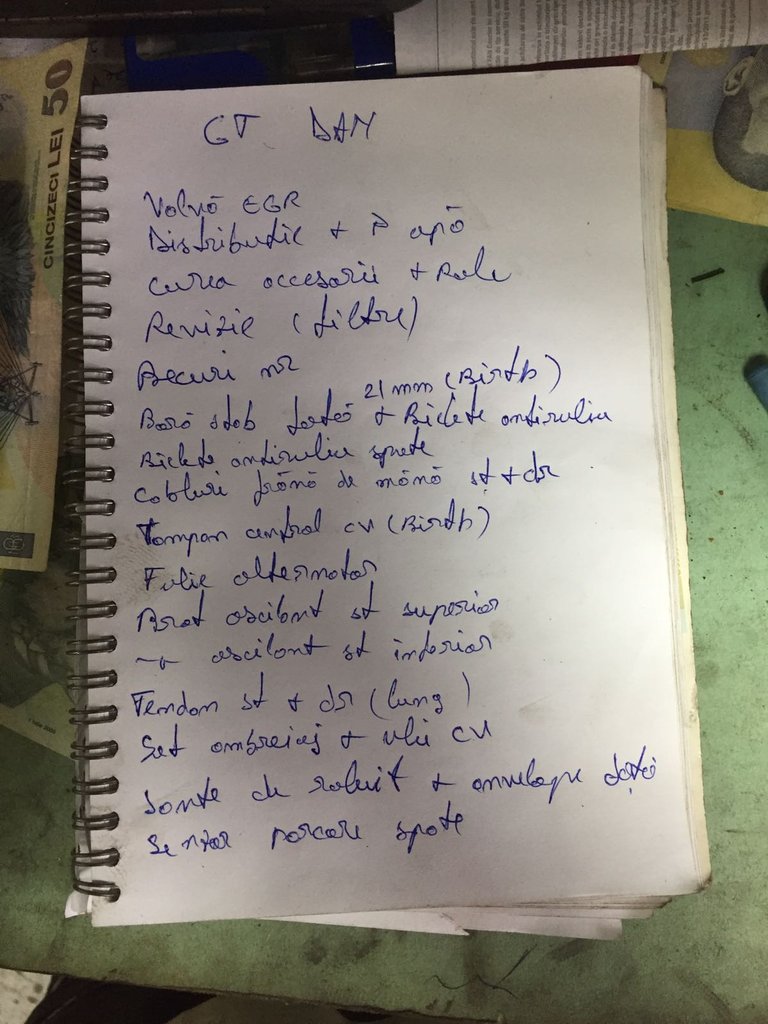 CINCIZECI LEI 50
GT DAN
Valvă EGR
Distribuție + P apă
Curea accesorii + Role
Revizie (filtre)
Becuri nr
Bară stab față 21 mm (Birth) + Bielete antiruliu
Bielete antiruliu spate
Cabluri frână de mână st + dr
Tampon central cv (Birth)
Fulie alternator
Braț oscilant st superior
oscilant st inferior
Tendon st + dr (lung)
Set ambreiaj + ulei cv
Jante de rulat + anvelope
Senzor parcare spate